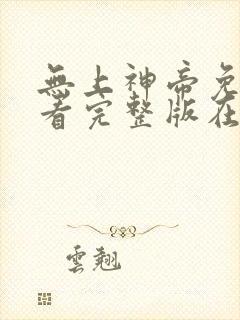 無上神帝免
看完整版在
雲翹